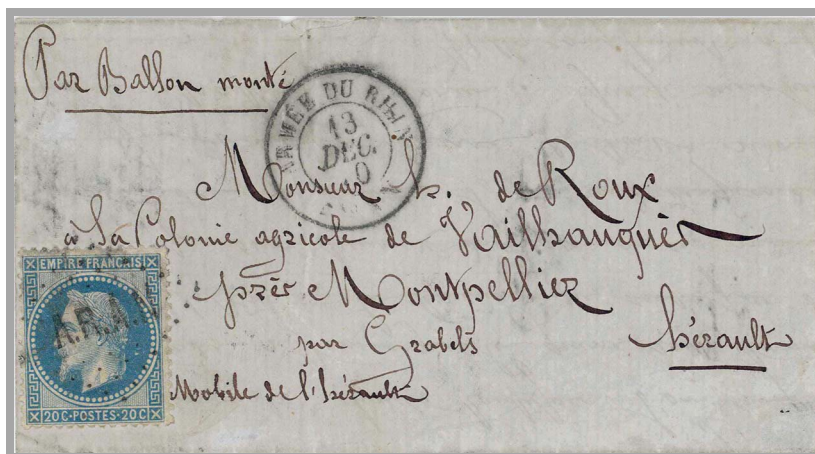 Par Ballon monté
ARMÉE DU RHIN
13
DEC.
0
Monsieur h. de Roux
à la Colonie agricole de Vailhauquès
près Montpellier
par Grabels
hérault
Mobile de l'hérault
EMPIRE FRANÇAIS
A.R.A.
20 C·POSTES·20 C